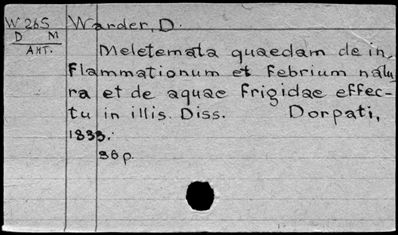 W 265 Warder, D.
D M
ANT.
Meletemata quaedam de in-
flammationum et febrium natu
ra et de aquae frigidae effec-
tu in illis. Diss. Dorpati,
1833.
38 p.